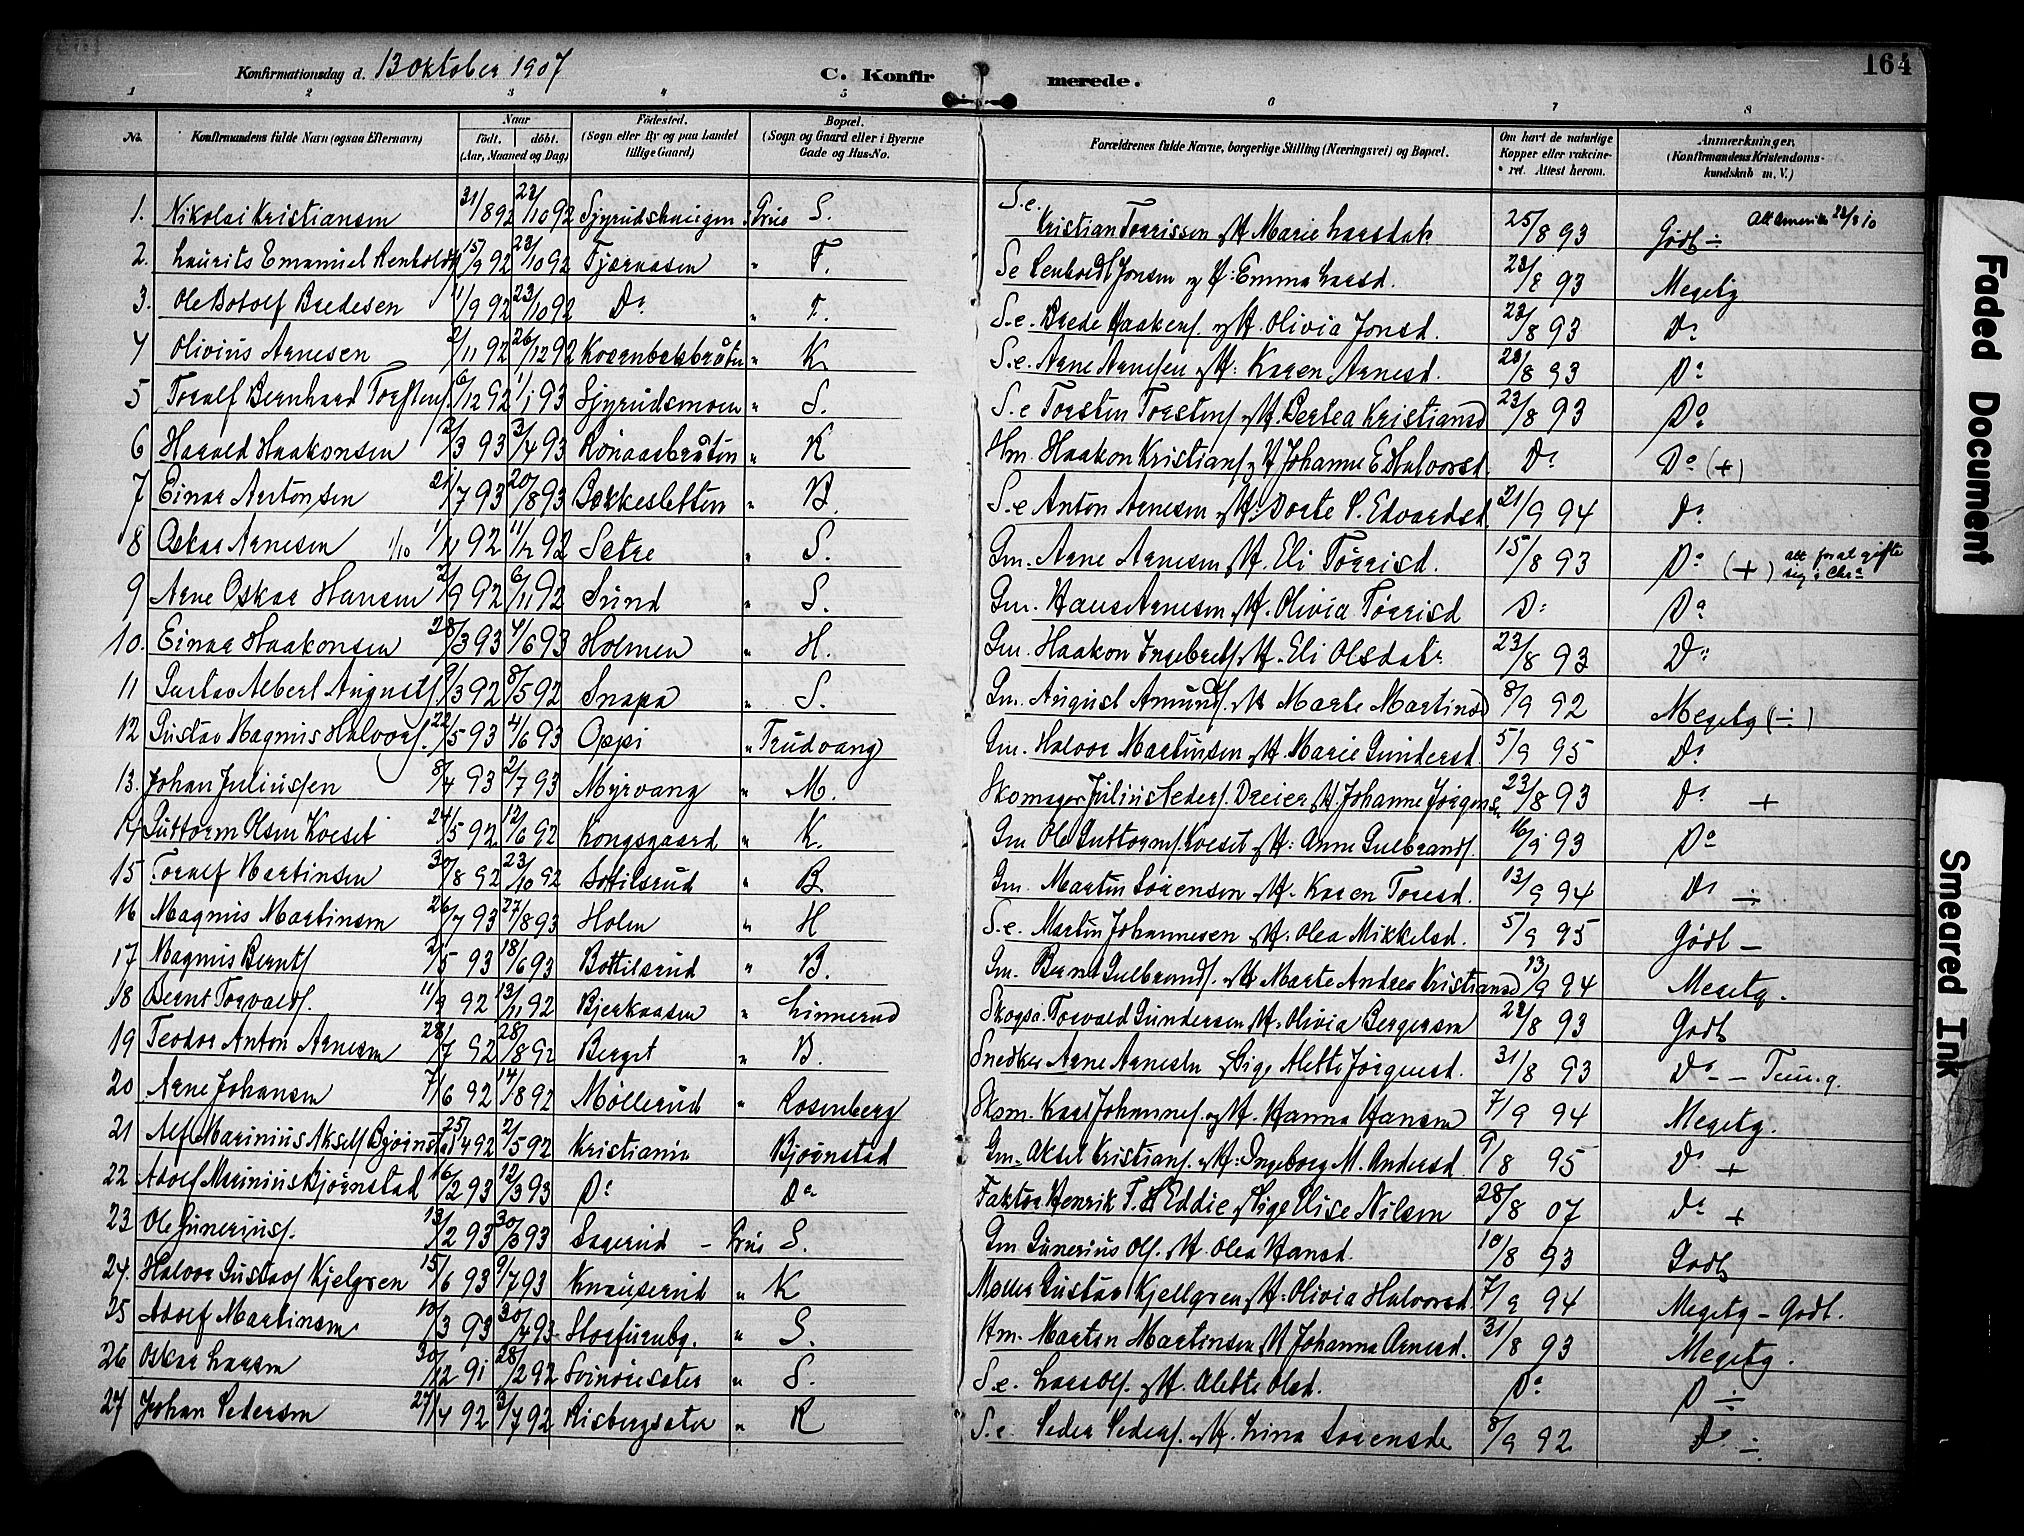 164
Konfirmationsdag d. 13 Oktober 1907 C. Konfirmerede.
1 2 3 4 5 6 7 8
No. Konfirmandens fulde Navn (ogsaa Efternavn) Naar født, døbt. (Aar, Maaned og Dag) Fødested. (Sogn eller By og paa Landet tillige Gaard) Bopæl. (Sogn og Gaard eller i Byerne Gade og Hus-No. Forældrenes fulde Navne, borgerlige Stilling (Næringsvei) og Bopæl. Om havt de naturlige Kopper eller vakcineret. Attest herom. Anmærkninger. (Konfirmandens Kristendomskundskab m. V.)
1. Nikolai Kristiansen 31/8 92 23/10 92 S. S.e. Kristian Torrissen og H. Marie Larsdatr 25/8 93 Godt ÷
2. Laurits Emanuel 15/9 92 23/10 92 Fjærnasen " F. Se Jonsen og H: Emma Larsd. 23/8 93 Megetg
3. Ole Botolf Bredesen 1/9 92 23/10 92 Do " F. S.e. Brede Haakens. og H. Olivia Jonsd. 23/8 93 Do
4 Olivius Arnesen 2/11 92 26/12 92 " K S.e. Arne Arnesen og H: Karen Arnesd. 23/8 93 Do
5 Toralf Bernhard Torstens. 6/12 92 1/1 93 " S. S.e Torsten Torstens. og H. Bertea Kristiansd 23/8 93 Do
6 Harald Haakonsen 2/3 93 3/4 93 " K Hm. Haakon Kristians. og H Johanne E Halvorsd. Do Do (+)
7 Einar Antonsen 21/7 93 20/8 93 Bakkesletten " B. S.e Anton Arnesen og H. Dorte P. Edvardsd. 21/9 94 Do
8 Oskar Arnesen 1/10 1/11 92 11/12 92 Setre " S. Gm. Arne Arnesen og H. Eli Tørrisd. 15/8 93 Do (+) att. for at gifte sig i Chra
9 Arne Oskar Hansen 2/9 92 6/11 92 Sund " S. Gm. Hans Arnesen og H. Olivia Tørrisd Do Do
10. Einar Haakonsen 28/3 93 4/6 93 Holmen " H. Gm. Haakon Ingebrets. og H. Eli Olsdatr 23/8 93 Do
11 Gustav Albert Augusts. 9/3 92 8/5 92 Snapa " S. Gm. August Amunds. og H Marte Martinsd 8/9 92 Megetg (÷)
12 Gustav Magnus Halvors. 22/5 93 4/6 93 Oppi " Trudvang Gm. Halvor Martinsen og H. Marie Gundersd. 5/9 95 Do
13. Johan Juliussen 8/4 93 2/7 93 Myrvang " M. Skomager Julius Peders. Dreier og H Johanne Jørgens. 23/8 93 Do +
14 Guttorm Olsen Koeset 24/5 92 12/6 92 Kongsgaard " K. Gm Ole Guttorms. Koeset og H: Anne Gulbrands. 16/9 93 Do
15 Toralf Martinsen 30/8 92 23/10 92 Bottilsrud " B Gm. Martin Sørensen og H. Karen Toresd. 13/9 94 Do ÷
16 Magnus Martinsen 26/7 93 27/8 93 Holen " H S.e. Martin Johannesen og H. Olea Mikkelsd. 5/9 95 Godt –
17 Magnus Bernts. 2/5 93 18/6 93 Bottilsrud " B. Gm. Bernt Gulbrands. og H Marte Andrea Kristiansd 13/9 94 Megetg.
18 Bernt Torvalds. 11/9 92 13/11 92 Bjerkaasen " Linnerud Torvald Gundersen og H. Olivia Bergersen 22/8 93 Godt
19 Teodor Anton Arnesen 28/7 92 28/8 92 Berget " B. Snedker Arne Arnesen og Pige Alette Jørgensd. 31/8 93 Do –
20 Arne Johansen 7/6 92 14/8 92 Møllerud " Rosenberg Skom. Karl Johannes. og H. Hanna Hansen 7/9 94 Megetg.
21 Alf Marinius Aksels. Bjørnstad 25/4 92 2/5 92 Kristiania Bjørnstad Gm. Aksel Kristians. og H. Ingeborg M. Andersd. 9/8 95 Do +
22 Adolf Marinius Bjørnstad 16/2 93 12/3 93 Do Do Faktor Henrik T. H Eddie og Pige Elise Nilsen 28/8 07 Do +
23 Ole Gunerius. 13/2 93 30/3 93 Sagerud – S. Gm Gunerius Ols. og H. Olea Hansd. 10/8 93 Godt
24. Halvor Gustav Kjelgren 15/6 93 9/7 93 Knauserud " K Møller Gustav Kjellgren og H. Olivia Halvorsd. 7/9 94 Megetg – Godt.
25 Adolf Martinsen 10/3 93 30/4 93 " S. Hm. Marten Martinsen og H Johanna Arnesd. 31/8 93 Megetg.
26 Oskar Larsen 30/12 91 28/2 92 " S. S.e. Lars Ols. og H. Alette Olsd. Do D ÷
27 Johan Pedersen 27/4 92 3/7 92 Risbergsæter " R S.e. Peder Peders. og H. Lina Sørensdr 8/9 92 Do ÷
Faded Document
Smeared Ink